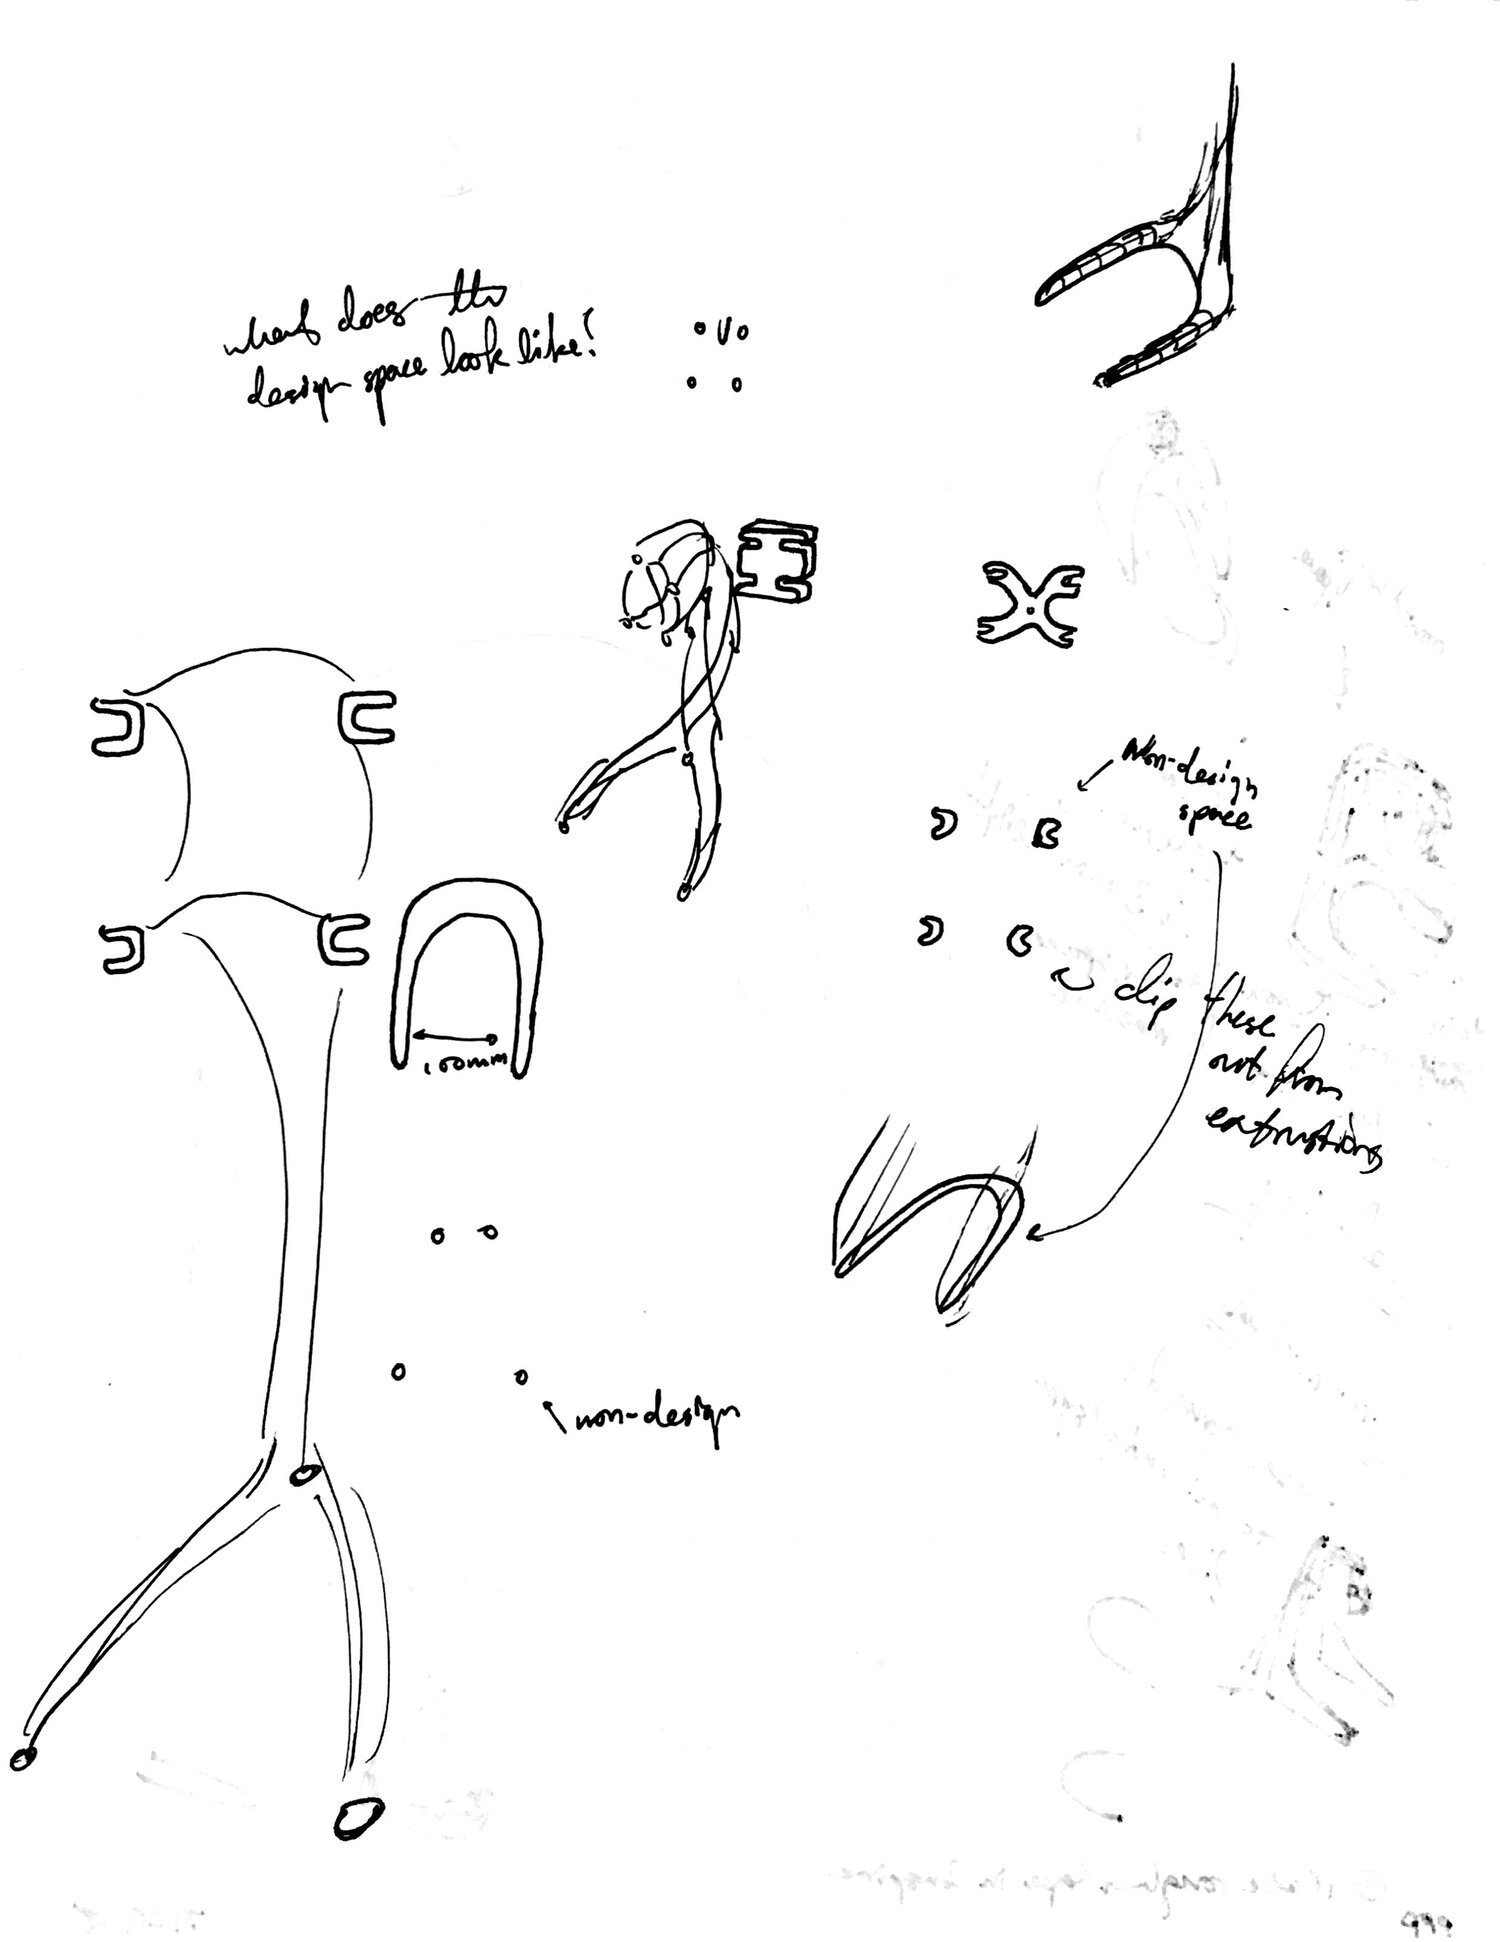 what does the
design space look like?
Non-design
space
clip these
out from
extrusions
100mm
non-design